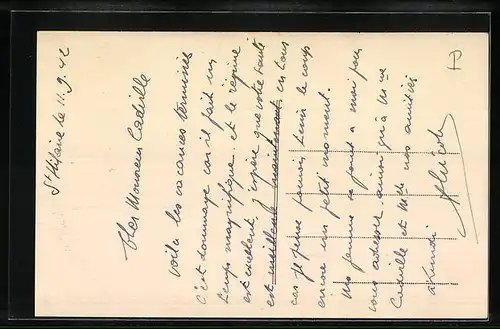 St Hilaire le 11.9.42
Cher Monsieur Cadville
Voila les vacances terminées
c'est dommage car il fait un
temps magnifique. et le régime
est excellent, j'espère que votre santé
est meilleure maintenant en tous
cas je pense pouvoir tenir le coup
encore un petit moment.
Ma femme se joint à moi pour
vous adresser ainsi qu'à Mme
Cadville et Mlle nos amitiés